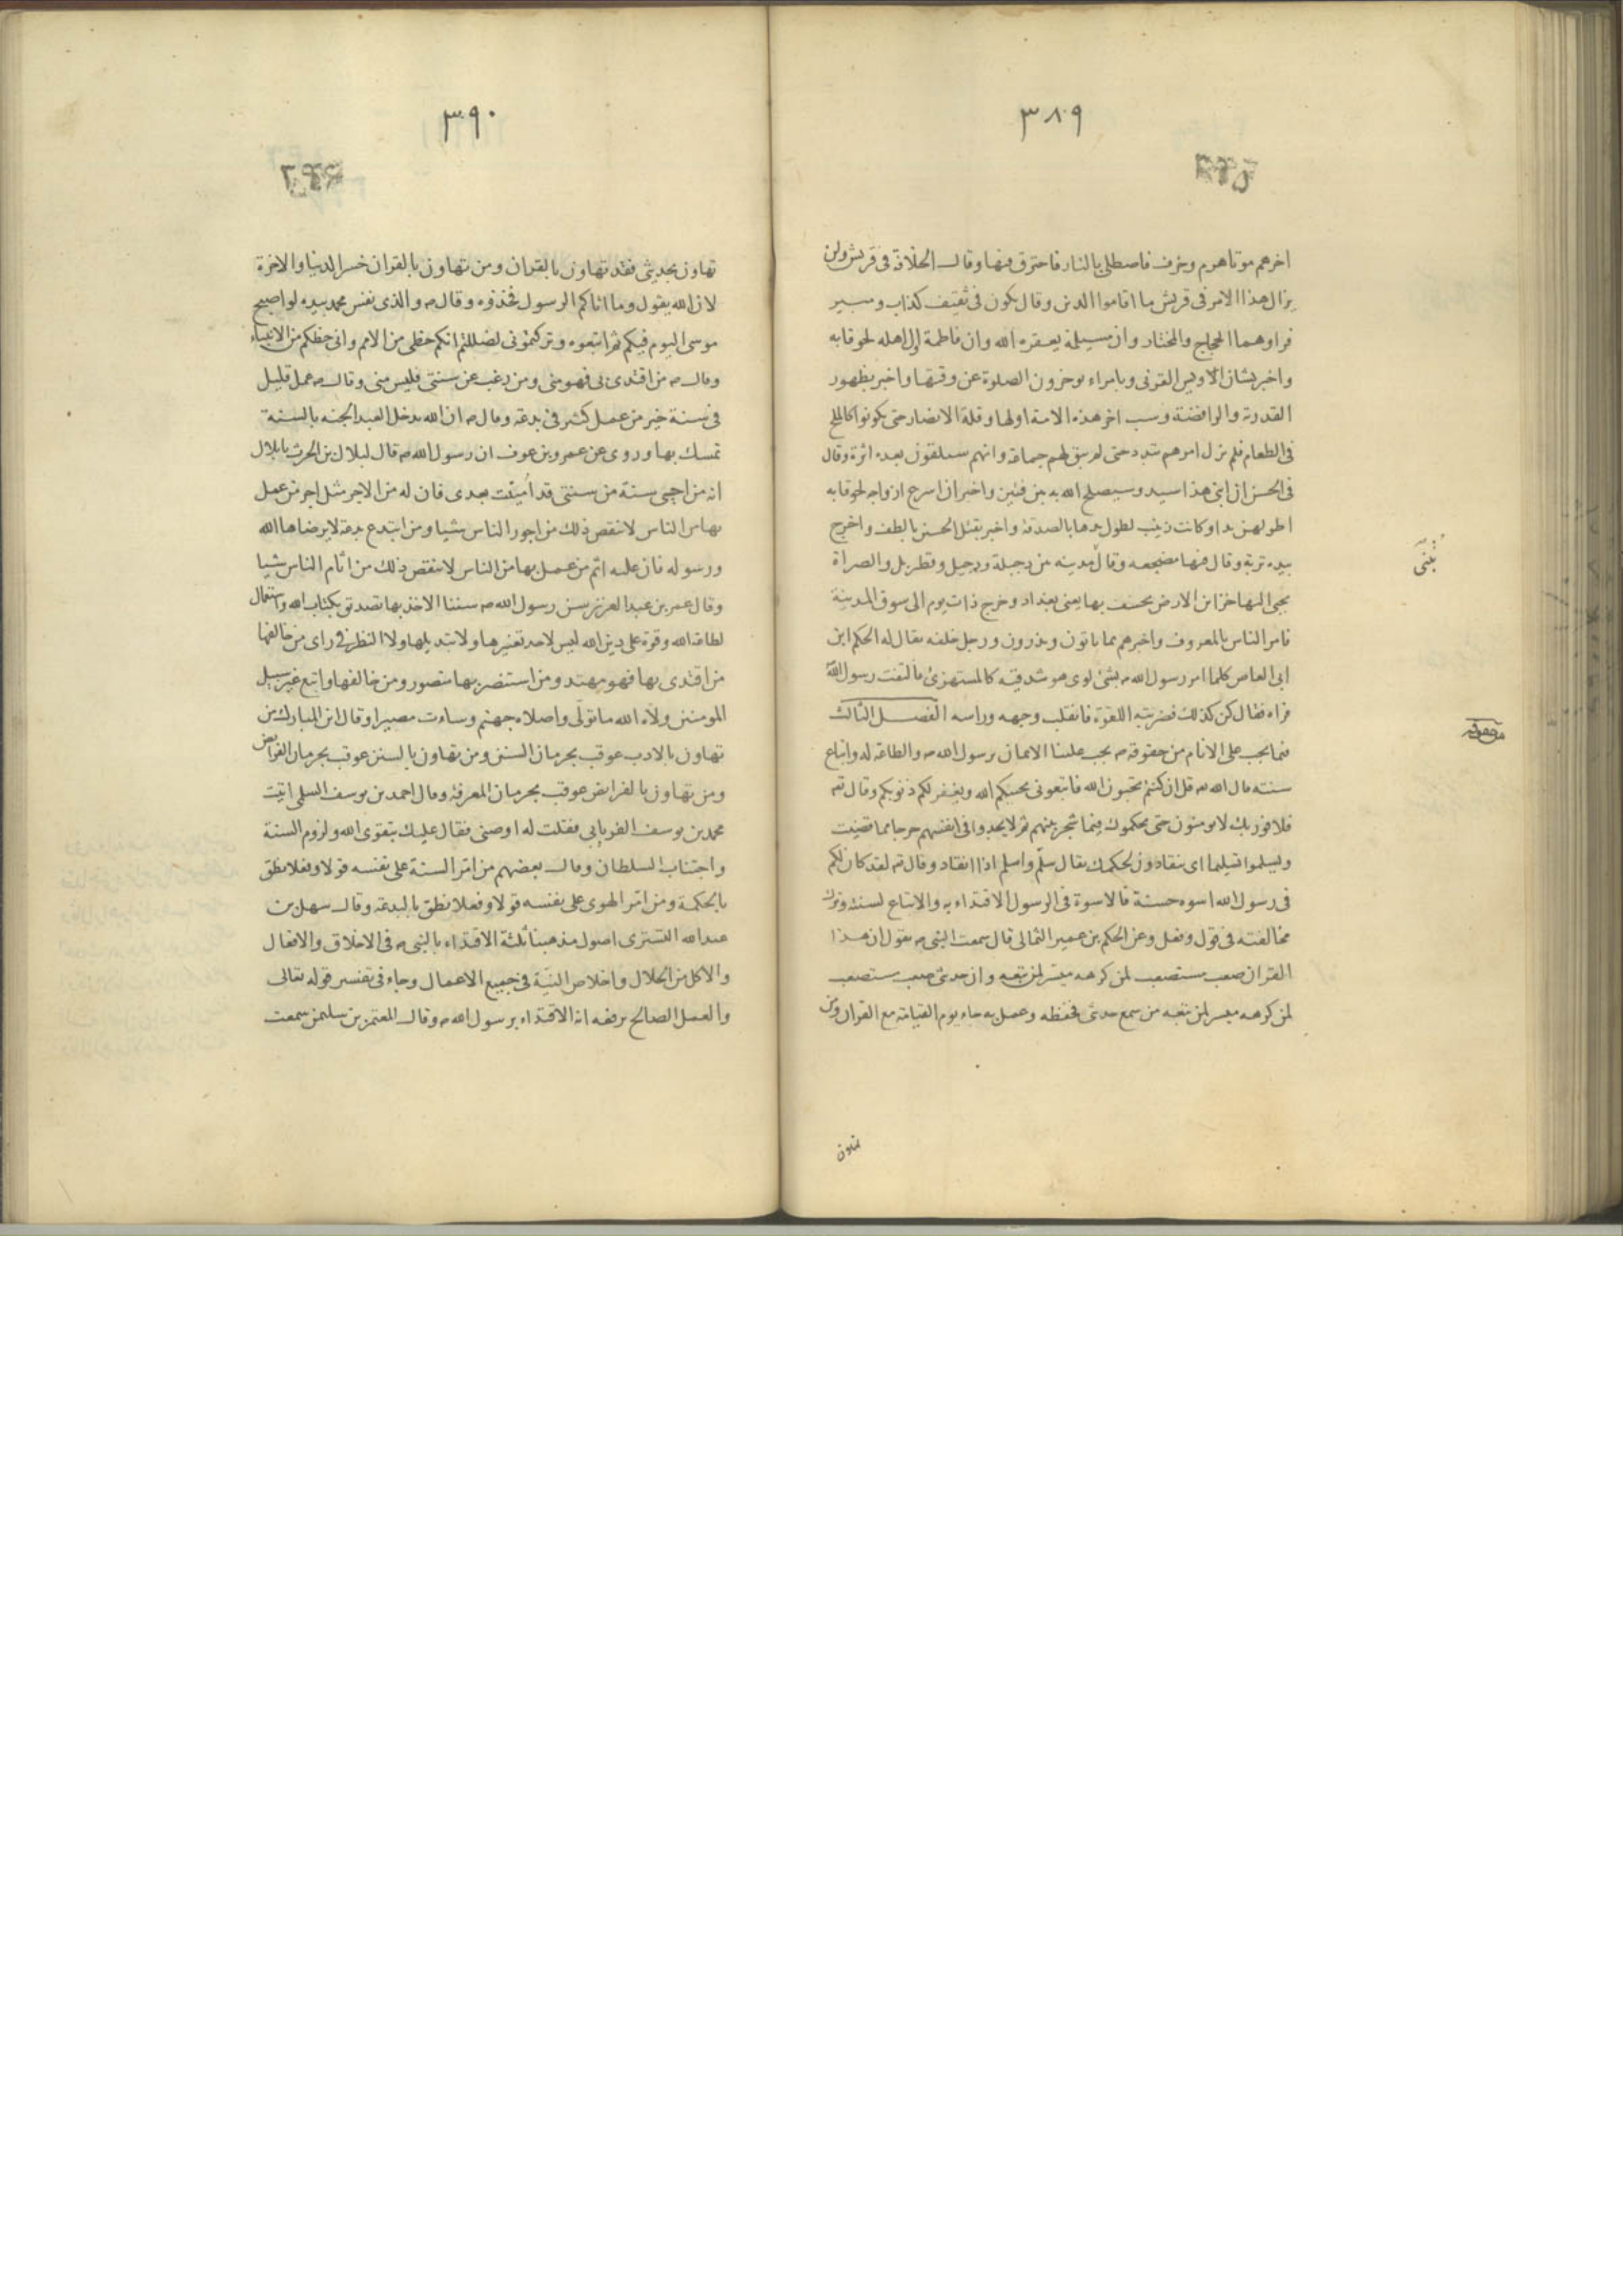 ٣٨٩
اخرهم موتا هرم وخرف فاصطلى بالنار فاحترق فيها وقال الخلافة فى قريش ولن
يزال هذا الامر فى قريش ما اقاموا الدين وقال يكون فى ثقيف كذاب ومبير
فراوهما الحجاج والمختار وان مسيلمة يعقره الله وان فاطمة اول اهله لحوقا به
واخبر بشان الاويس القرنى وبامراء يوخرون الصلوة عن وقتها واخبر بظهور
القدرية والرافضة وسب اخر هذه الامة اولها وقلة الانصار حتى يكونوا كالملح
فى الطعام فلم يزل امرهم يتبدد حتى لم يبق لهم جماعة وانهم سيلقون بعده اثرة وقال
فى الحسن ان ابنى هذا سيد وسيصلح الله به بين فئتين واخبر ان اسرع ازواجه لحوقا به
اطولهن يدا وكانت زينب لطول يدها بالصدقة واخبر بقتل الحسين بالطف واخرج
بيده تربة وقال فيها مضجعه وقال مدينة بين دجلة ودجيل وقطربل والصراة
تُبْنَى
يجبى اليها خزاين الارض يخسف بها يعنى بغداد وخرج ذات يوم الى سوق المدينة
فامر الناس بالمعروف واخبرهم بما ياتون ويذرون ورجل خلفه يقال له الحكم ابن
ابى العاص كلما امر رسول الله ص بشئ لوى هو شدقيه كالمستهزئ فالتفت رسول الله
فراه فقال كن كذلك فضربته اللقوة فانقلب وجهه وراسه الفصل الثالث
فيما يجب على الانام من حقوقه ص يجب علينا الايمان برسول الله ص والطاعة له واتباع
سنته قال الله تع قل ان كنتم تحبون الله فاتبعونى يحببكم الله ويغفر لكم ذنوبكم وقال تع
فلا فوربك لا يومنون حتى يحكموك فيما شجر بينهم ثم لا يجدوا فى انفسهم حرجا مما قضيت
ويسلموا تسليما اى ينقادون لحكمك يقال سلّم واسلم اذا انقاد وقال تع لقد كان لكم
فى رسول الله اسوه حسنة فالاسوة فى الرسول الاقتداء به والاتباع لسنته وترك
مخالفته فى قول وفعل وعن الحكم بن عمير الثمالى قال سمعت النبى ص يقول ان هذا
القران صعب مستصعب لمن كرهه ميسر لمن تبعه وان حديثى صعب مستصعب
لمن كرهه ميسر لمن تبعه من سمع حديثى فحفظه وعمل به جاء يوم القيامة مع القران ومن
تهاون
٣٩٠
تهاون بحديثى فقد تهاون بالقران ومن تهاون بالقران خسر الدنيا والاخرة
لان الله يقول وما اتاكم الرسول فخذوه وقال ص والذى نفس محمد بيده لو اصبح
موسى اليوم فيكم ثم اتبعوه وتركتمونى لضللتم انكم حظى من الامم وانى حظكم من الانبياء
وقال ص من اقتدى بى فهو منى ومن رغب عن سنتى فليس منى وقال ص عمل قليل
فى سنة خير من عمل كثير فى بدعة وقال ص ان الله يدخل العبد الجنة بالسنة
تمسك بها وروى عن عمرو بن عوف ان رسول الله ص قال لبلال بن الحرث يا بلال
انه من احيى سنة من سنتى قد اُميتت بعدى فان له من الاجر مثل اجر من عمل
بها من الناس لا ينقص ذلك من اجور الناس شيا ومن ابتدع بدعة لا يرضاها الله
ورسوله فان عليه اثم من عمل بها من الناس لا ينقص ذلك من اثام الناس شيا
وقال عمر بن عبد العزيز سن رسول الله ص سننا الاخذ بها تصديق بكتاب الله واستعمال
لطاعة الله وقوة على دين الله ليس لاحد تغييرها ولا تبديلها ولا النظر فى راى من خالفها
من اقتدى بها فهو مهتد ومن استنصر بها منصور ومن خالفها واتبع غير سبيل
المومنين ولاه الله ما تولّى واصلاه جهنم وساءت مصيرا وقال ابن المبارك من
تهاون بالادب عوقب بحرمان السنن ومن تهاون بالسنن عوقب بحرمان الفرايض
ومن تهاون بالفرايض عوقب بحرمان المعرفة وقال احمد بن يوسف السلمى اتيت
محمد بن يوسف الفريابى فقلت له اوصنى فقال عليك بتقوى الله ولزوم السنة
واجتناب السلطان وقال بعضهم من امّر السنة على نفسه قولا وفعلا نطق
بالحكمة ومن امّر الهوى على نفسه قولا وفعلا نطق بالبدعة وقال سهل بن
عبد الله التسترى اصول مذهبنا ثلثة الاقتداء بالنبى ص فى الاخلاق والافعال
والاكل من الحلال واخلاص النية فى جميع الاعمال وجاء فى تفسير قوله تعالى
والعمل الصالح يرفعه انه الاقتداء برسول الله ص وقال المعتمر بن سليمن سمعت